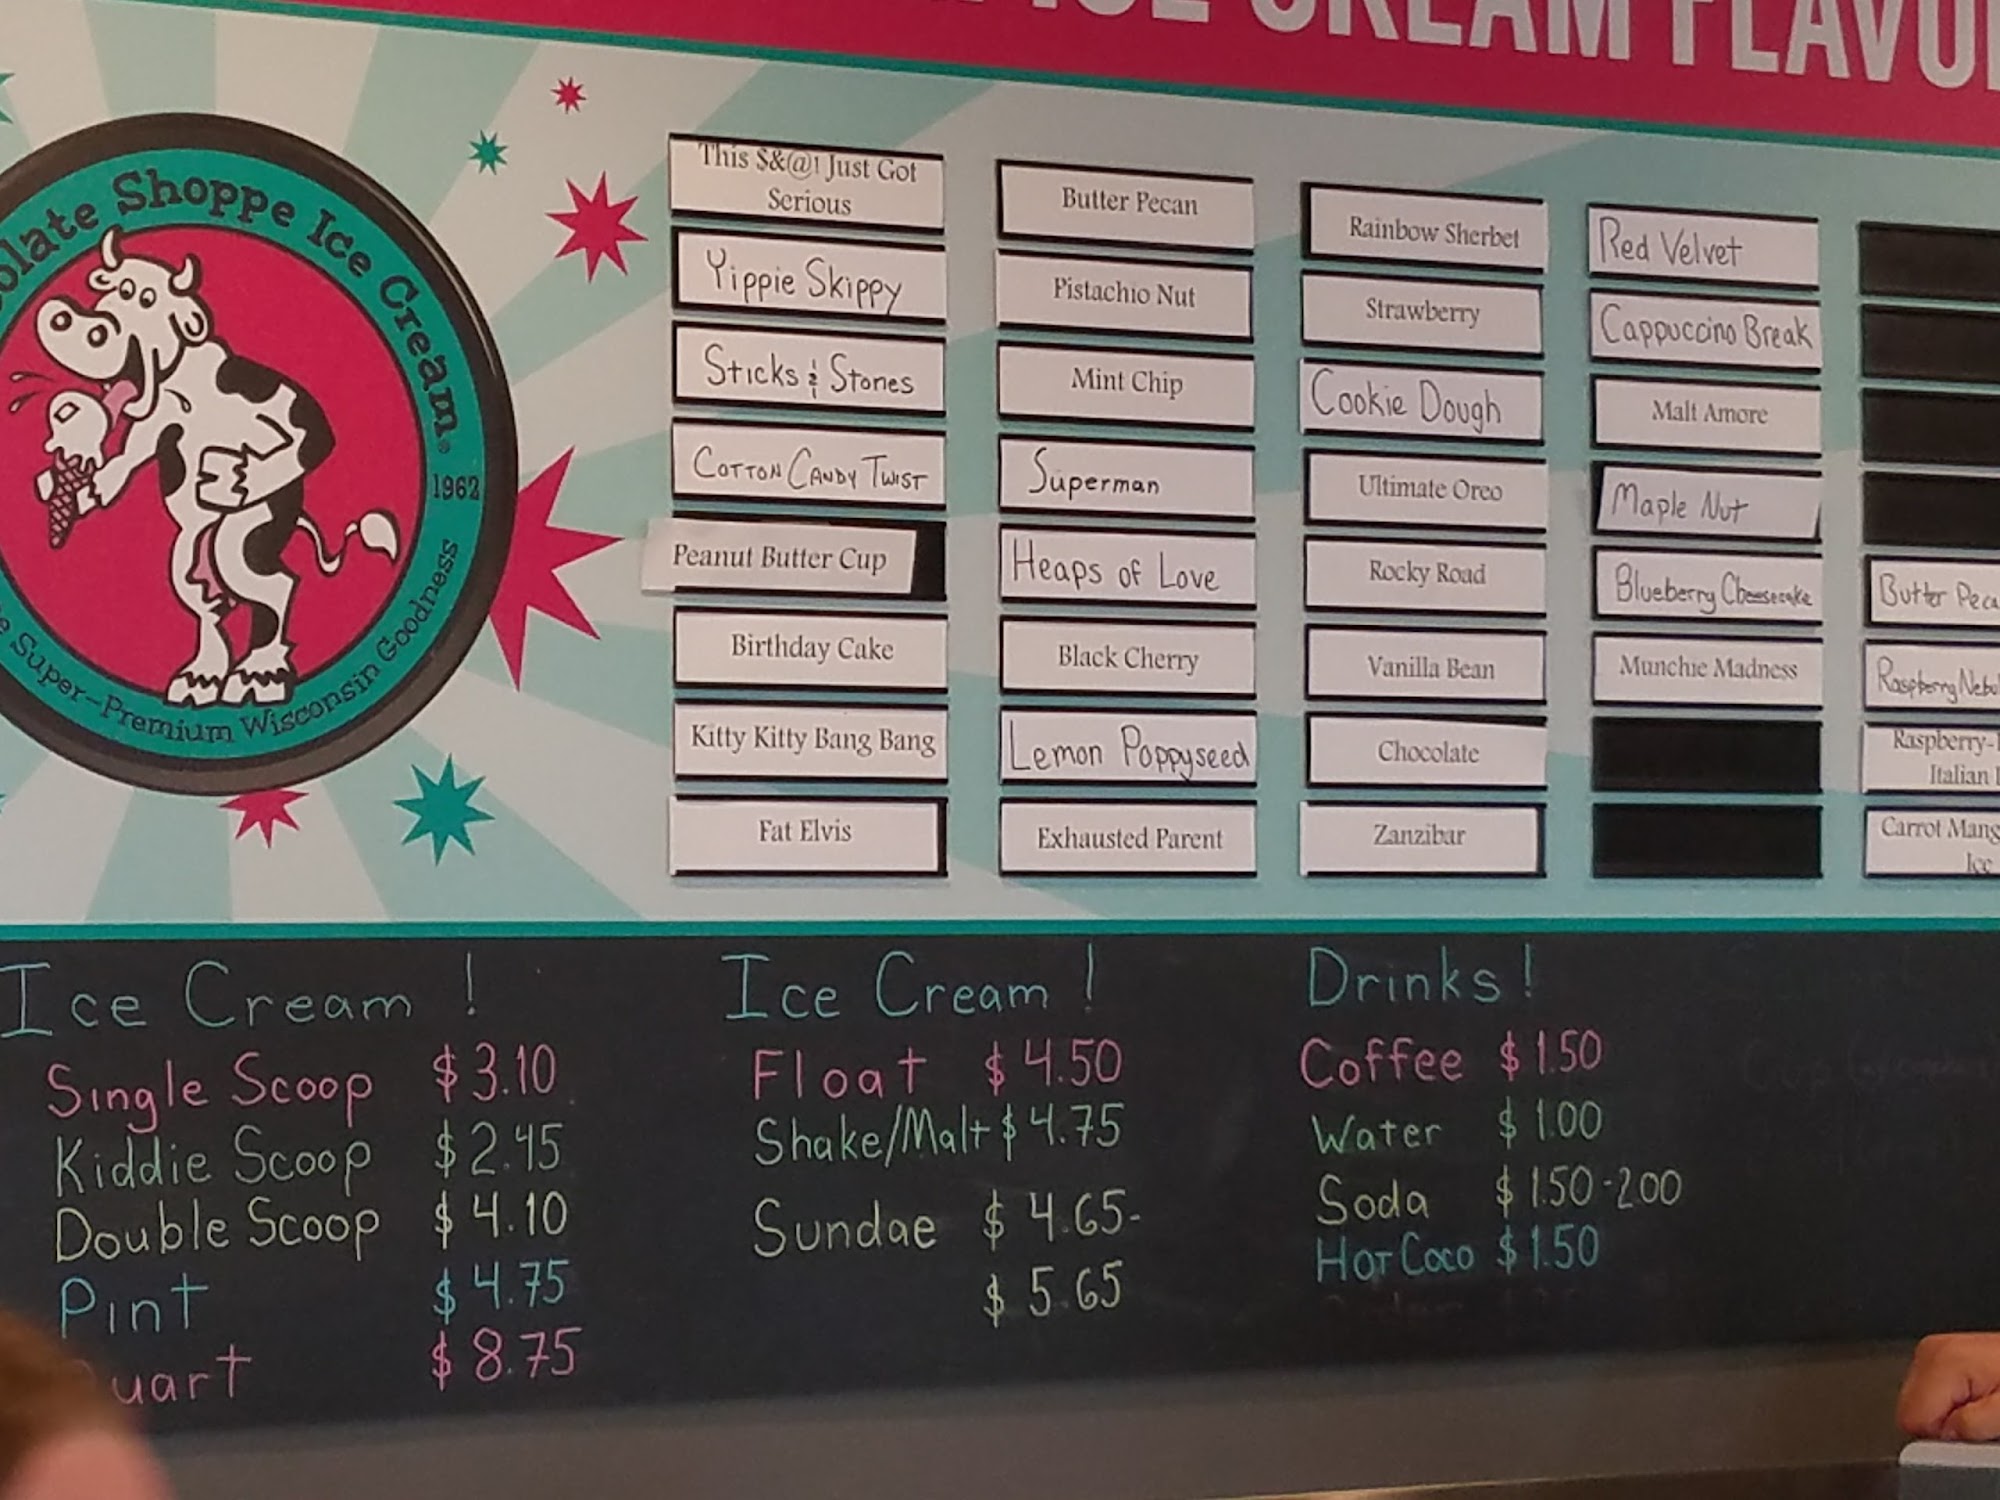 ICE CREAM FLAVO
Shoppe Ice Cream®
1962
Super-Premium Wisconsin Goodness
This $&@! Just Got
Serious
Yippie Skippy
Sticks & Stones
Cotton Candy Twist
Peanut Butter Cup
Birthday Cake
Kitty Kitty Bang Bang
Fat Elvis
Butter Pecan
Pistachio Nut
Mint Chip
Superman
Heaps of Love
Black Cherry
Lemon Poppyseed
Exhausted Parent
Rainbow Sherbet
Strawberry
Cookie Dough
Ultimate Oreo
Rocky Road
Vanilla Bean
Chocolate
Zanzibar
Red Velvet
Cappuccino Break
Malt Amore
Maple Nut
Blueberry Cheesecake
Munchie Madness
Butter Peca
Raspberry Nebu
Raspberry-
Italian
Carrot Mang
Ice
Ice Cream!
Single Scoop $3.10
Kiddie Scoop $2.45
Double Scoop $4.10
Pint $4.75
uart $8.75
Ice Cream!
Float $4.50
Shake/Malt $4.75
Sundae $4.65-
$5.65
Drinks!
Coffee $1.50
Water $1.00
Soda $1.50-2.00
Hot Coco $1.50